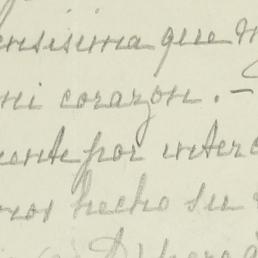 ensisima que m
mi corazon . -
ente por interc
nos hecho su